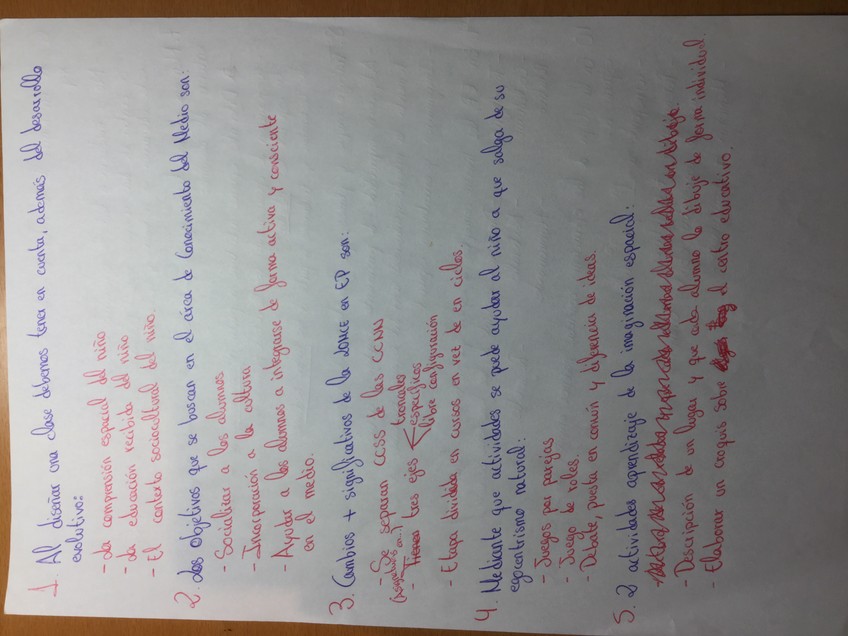 1. Al diseñar una clase debemos tener en cuenta, además del desarrollo
evolutivo:
- La comprensión espacial del niño
- La educación recibida del niño
- El contexto sociocultural del niño.
2. Los objetivos que se buscan en el área de Conocimiento del Medio son:
- Socializar a los alumnos
- Incorporación a la cultura
- Ayudar a los alumnos a integrarse de forma activa y consciente
en el medio.
3. Cambios + significativos de la LOMCE en EP son:
- Se separan CCSS de las CCNN
- Tienen tres ejes
troncales
específicas
libre configuración
- Etapa dividida en cursos en vez de en ciclos.
4. Mediante que actividades se puede ayudar al niño a que salga de su
egocentrismo natural:
- Juegos por parejas
- Juego de roles.
- Debate, puesta en común y diferencia de ideas.
5. 2 actividades aprendizaje de la imaginación espacial:
- Descripción de un lugar y que cada alumno lo dibuje de forma individual.
- Elaborar un croquis sobre el centro educativo.